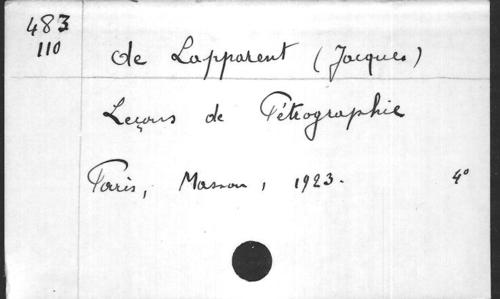 483
110
de Lapparent (Jacques)
Leçons de Pétrographie
Paris, Masson, 1923. 4°